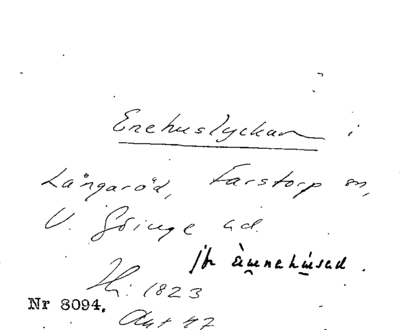 Enehuslyckan i
Långaröd, Farstorp sn,
V. Göinge hd.
jfr ännehúsad.
Hi. 1823
Nr 8094.
Akt 47